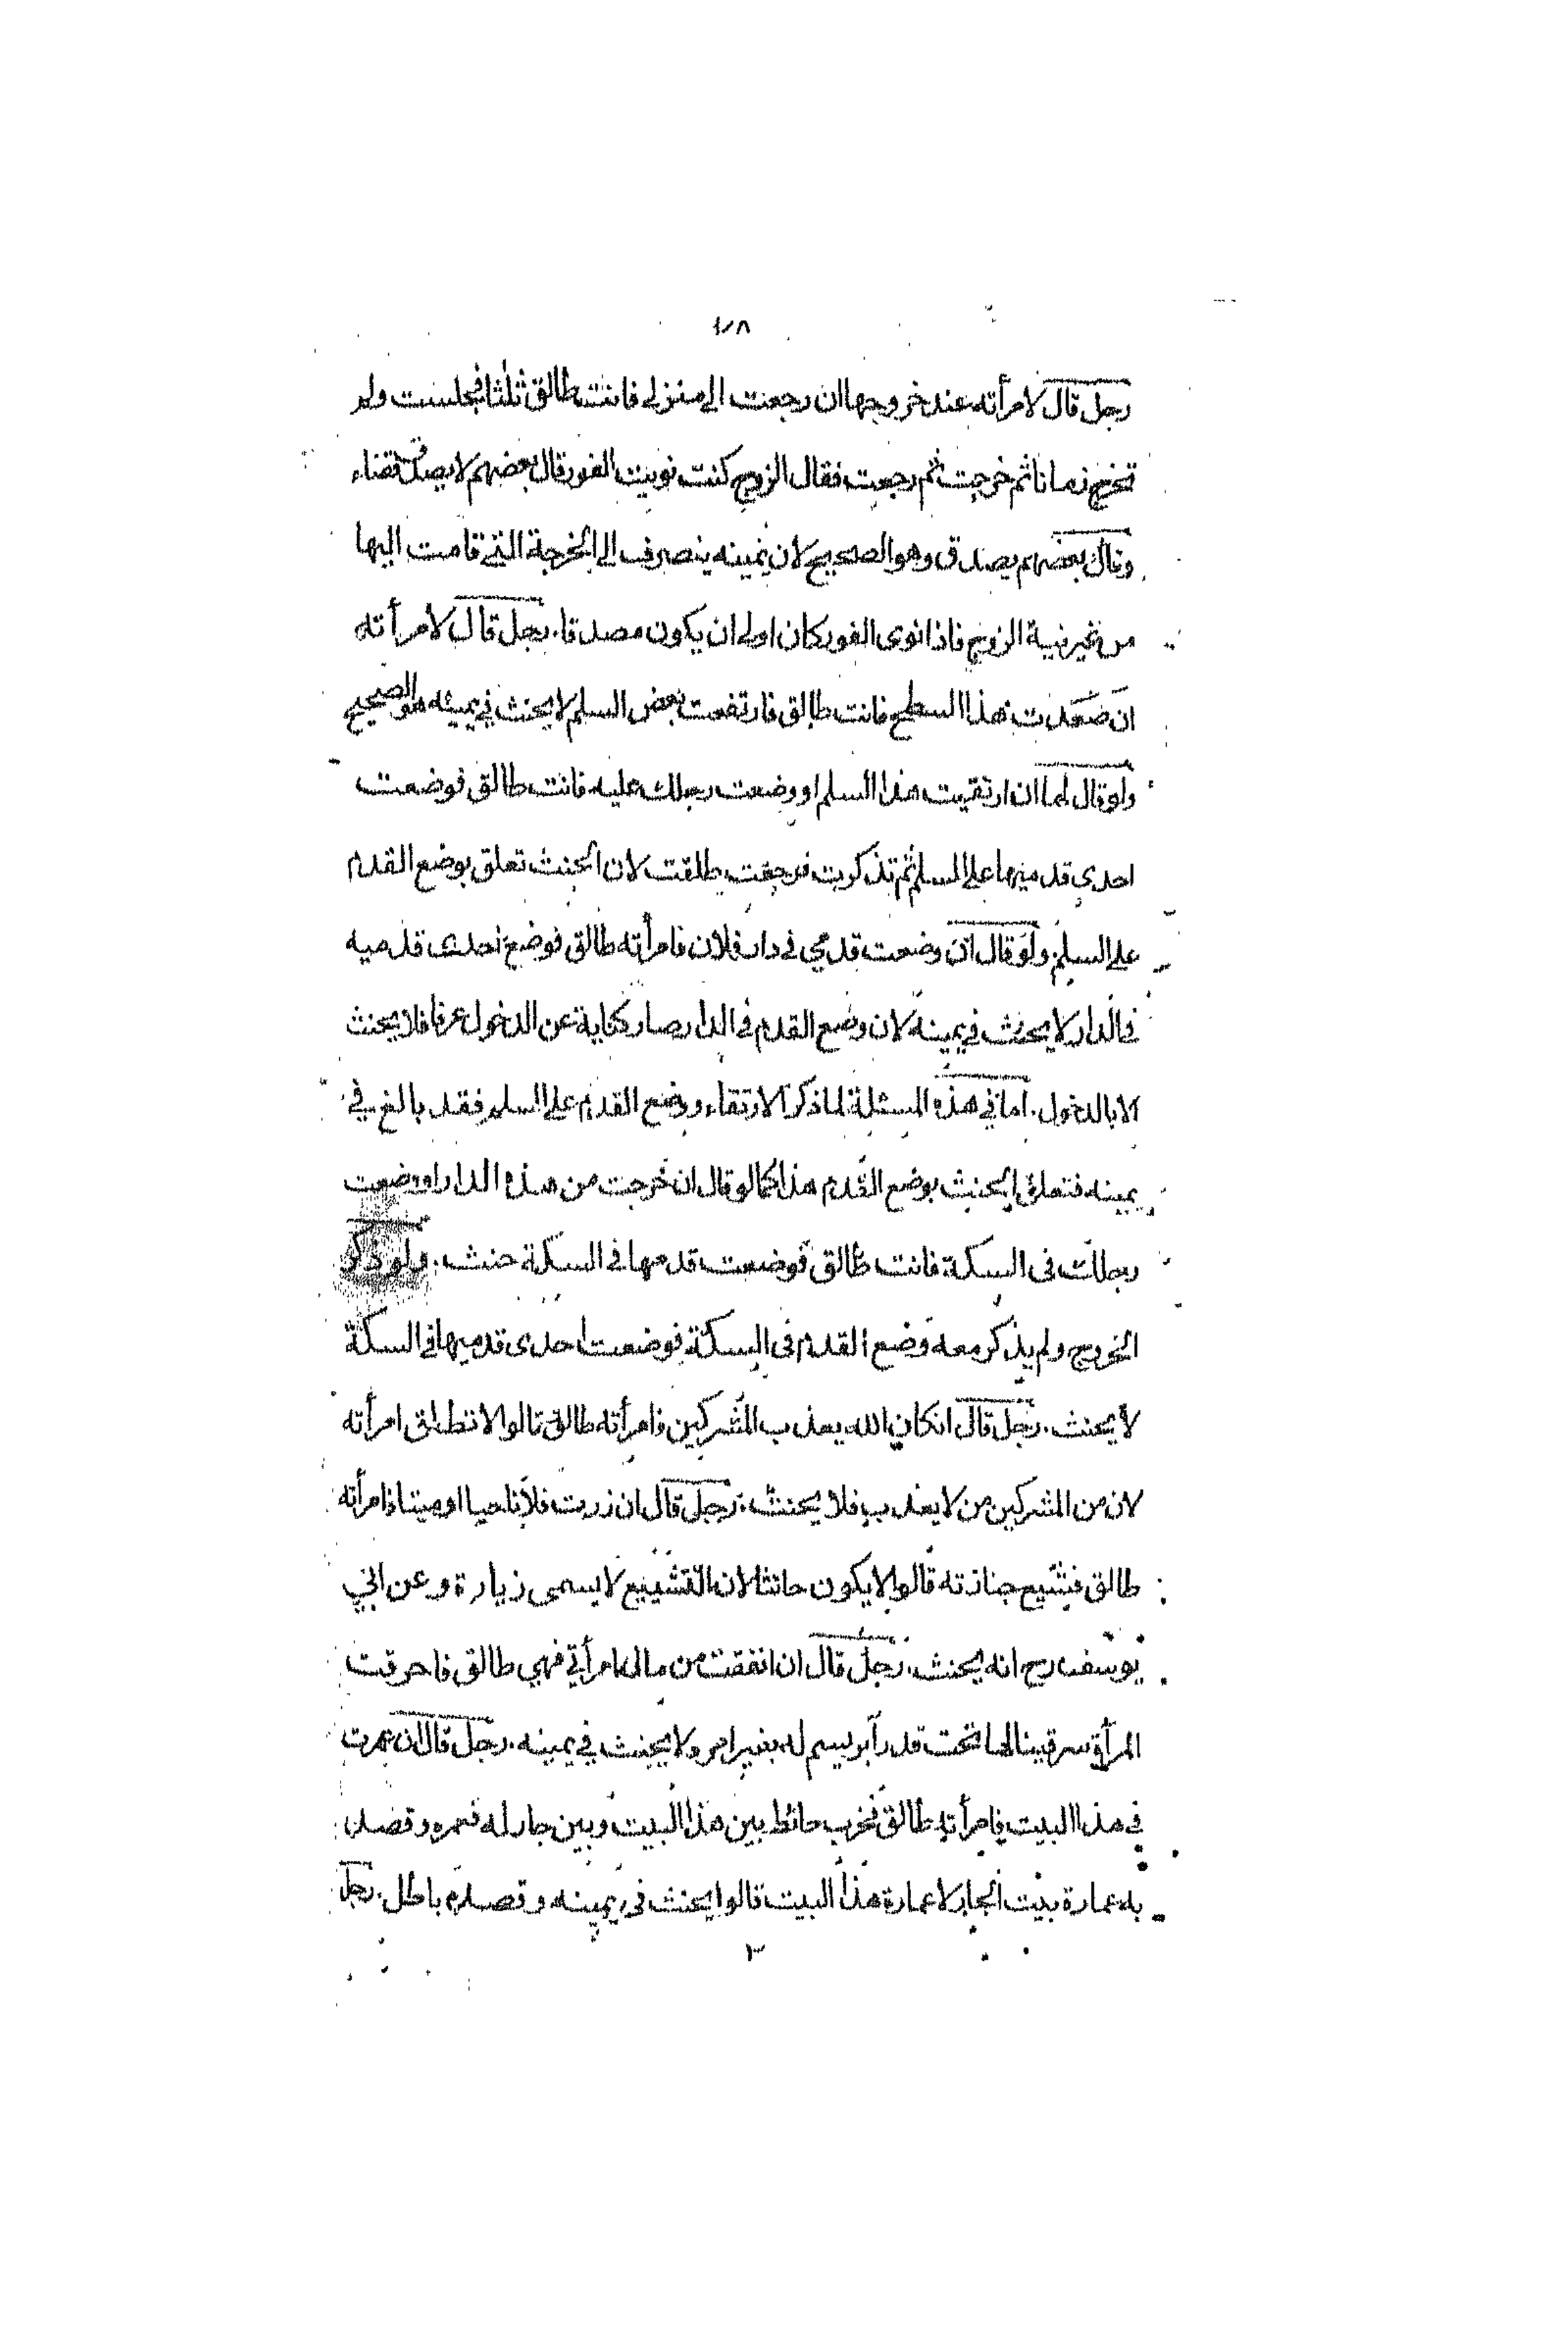 ١٠٨
رجل قال لامرأته عند خروجها ان رجعت الى منزلي فانت طالق ثلثا فجلست ولم
تخرج زمانا ثم خرجت ثم رجعت فقال الزوج كنت نويت الفور قال بعضهم لا يصدق قضاء
وقال بعضهم يصدق وهو الصحيح لان يمينه ينصرف الى الخرجة التي قامت اليها
من غير نية الزوج فاذا نوى الفور كان اولى ان يكون مصدقا. رجل قال لامرأته
ان صعدت هذا السطح فانت طالق فارتفعت بعض السلم لا يحنث في يمينه هو الصحيح
ولو قال لها ان ارتقيت هذا السلم او وضعت رجلك عليه فانت طالق فوضعت
احدى قدميها على السلم ثم تذكرت فرجعت طلقت لان الحنث تعلق بوضع القدم
على السلم. ولو قال ان وضعت قدمي في دار فلان فامرأته طالق فوضع احدى قدميه
في الدار لا يحنث في يمينه لان وضع القدم في الدار صار كناية عن الدخول عرفا فلا يحنث
الا بالدخول. اما في هذه المسئلة لما ذكر الارتقاء ووضع القدم على السلم فقد بالغ في
يمينه فتعلق الحنث بوضع القدم هذا كما لو قال ان خرجت من هذه الدار او وضعت
رجلك في السكة فانت طالق فوضعت قدمها في السكة حنث. ولو ذكر
الخروج ولم يذكر معه وضع القدم في السكة فوضعت احدى قدميها في السكة
لا يحنث. رجل قال انكان الله يعذب المشركين فامرأته طالق قالوا لا تطلق امرأته
لان من المشركين من لا يعذب فلا يحنث. رجل قال ان زرت فلانا حيا او ميتا فامرأته
طالق فشيع جنازته قالوا لا يكون حانثا لان التشييع لا يسمى زيارة وعن ابي
يوسف رح انه يحنث. رجل قال ان انفقت من مالى امرأتي فهي طالق فاحرقت
المرأة سرقينا لها تحت قدر ابريسم له بغير امره لا يحنث في يمينه. رجل قال ان عمرت
في هذا البيت فامرأته طالق فخرب حائط بين هذا البيت وبين جار له فعمره وقصد
به عمارة بيت الجار لا عمارة هذا البيت قالوا يحنث في يمينه وقصده باطل. رجل
٢